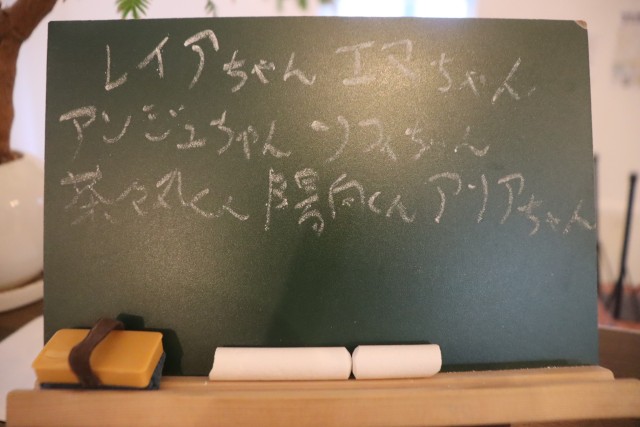 レイアちゃん エマちゃん
アンジュちゃん ソフィちゃん
茶々丸くん 陽向くん アリアちゃん